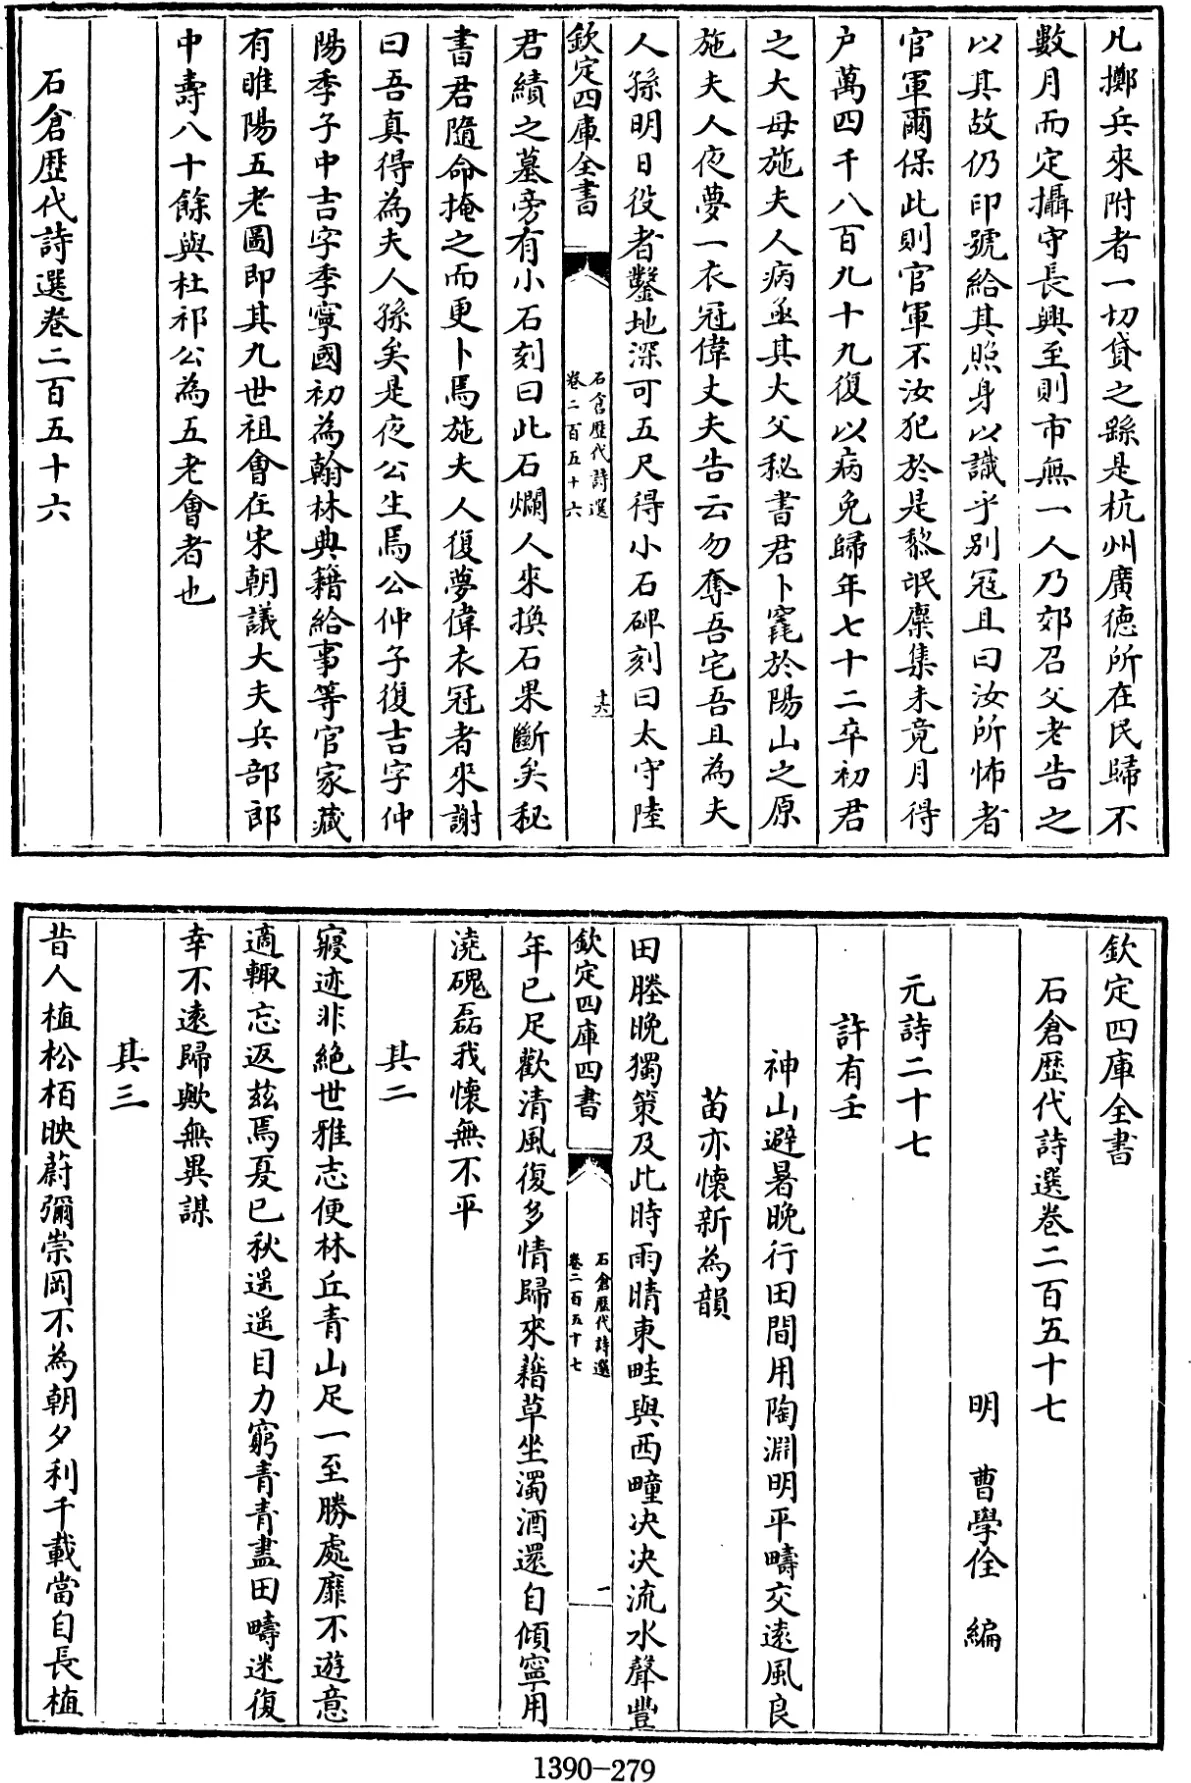 凡擲兵來附者一切貸之繇是杭州廣徳所在民歸不
數月而定攝守長興至則市無一人乃郊召父老告之
以其故仍印號給其照身以識乎别冦且曰汝所怖者
官軍爾保此則官軍不汝犯於是黎氓麇集未竟月得
户萬四千八百九十九復以病免歸年七十二卒初君
之大母施夫人病亟其大父秘書君卜窀於陽山之原
施夫人夜夢一衣冠偉丈夫告云勿奪吾宅吾且為夫
人孫明日役者鑿地深可五尺得小石碑刻曰太守陸
欽定四庫全書
石倉歷代詩選
卷二百五十六
十六
君績之墓旁有小石刻曰此石爛人來換石果斷矣秘
書君隨命掩之而更卜焉施夫人復夢偉衣冠者來謝
曰吾真得為夫人孫矣是夜公生焉公仲子復吉字仲
陽季子中吉字季寧國初為翰林典籍給事等官家藏
有睢陽五老圖即其九世祖會在宋朝議大夫兵部郎
中壽八十餘與杜祁公為五老會者也
石倉歷代詩選卷二百五十六
欽定四庫全書
石倉歷代詩選卷二百五十七
明 曹學佺 編
元詩二十七
許有壬
神山避暑晚行田間用陶淵明平疇交遠風良
苗亦懷新為韻
田塍晚獨策及此時雨晴東畦與西疃决决流水聲豐
欽定四庫四書
石倉歷代詩選
卷二百五十七
一
年已足歡清風復多情歸來藉草坐濁酒還自傾寧用
澆磈磊我懷無不平
其二
寢迹非絶世雅志便林丘青山足一至勝處靡不遊意
適輙忘返兹焉夏已秋遥遥目力窮青青盡田疇迷復
幸不遠歸歟無異謀
其三
昔人植松栢映蔚彌崇岡不為朝夕利千載當自長植
1390-279